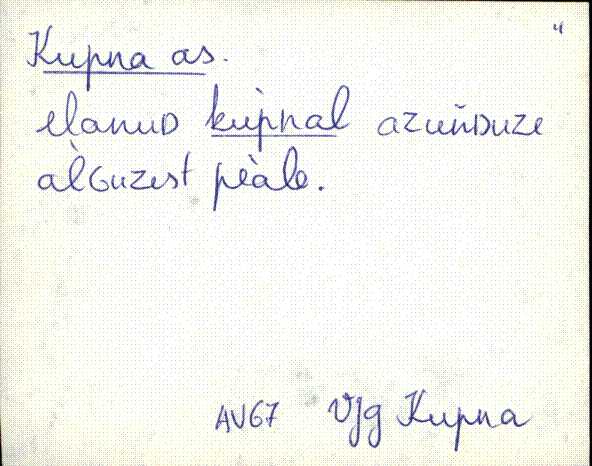 "
Kupna as.
elanuD kùpnal azuñDuze
àlGuzest pèàle.
AV67 Vjg Kupna